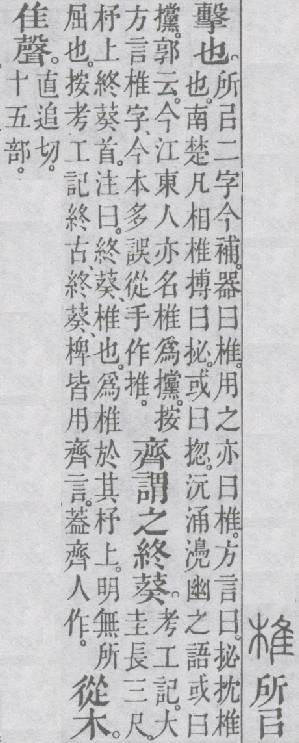 椎所㠯
擊也。所㠯二字今補。器曰椎。用之亦曰椎。方言曰。㧙抌椎
也。南楚凡相椎搏曰㧙。或曰㧾。沅涌㵝幽之語或曰
攩。郭云。今江東人亦名椎爲攩。按
方言椎字、今本多誤從手作推。
齊謂之終葵。考工記。大
圭長三尺。
杼上終葵首。注曰。終葵、椎也。爲椎於其杼上。明無所
屈也。按考工記終古、終葵、椑皆用齊言。葢齊人作。
從木。
隹聲。直追切。
十五部。